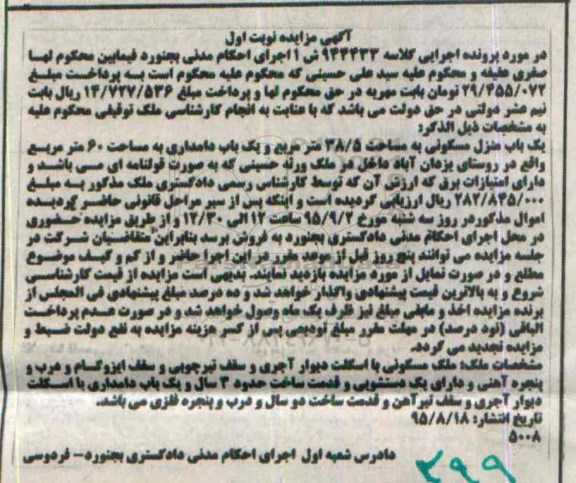 آگهی مزایده نوبت اول
در مورد پرونده اجرایی کلاسه ۹۴۴۴۳۳ ش ۱ اجرای احکام مدنی بجنورد فیمابین محکوم لها
صغری عفیفه و محکوم علیه سید علی حسینی که محکوم علیه محکوم است به پرداخت مبلغ
۲۹/۴۵۵/۰۷۲ تومان بابت مهریه در حق محکوم لها و پرداخت مبلغ ۱۴/۷۲۷/۵۳۶ ریال بابت
نیم عشر دولتی در حق دولت می باشد که با عنایت به انجام کارشناسی ملک توقیفی محکوم علیه
به مشخصات ذیل الذکر:
یک باب منزل مسکونی به مساحت ۳۸/۵ متر مربع و یک باب دامداری به مساحت ۶۰ متر مربع
واقع در روستای یزدان آباد داخل در ملک ورثه حسینی که به صورت قولنامه ای می باشد و
دارای امتیازات برق که ارزش آن که توسط کارشناس رسمی دادگستری ملک مذکور به مبلغ
۲۸۲/۸۳۵/۰۰۰ ریال ارزیابی گردیده است و اینکه پس از سیر مراحل قانونی حاضر گردیده
اموال مذکور در روز سه شنبه مورخ ۹۵/۹/۲ ساعت ۱۲ الی ۱۲/۳۰ از طریق مزایده حضوری
در محل اجرای احکام مدنی دادگستری بجنورد به فروش برسد بنابراین متقاضیان شرکت در
جلسه مزایده می توانند پنج روز قبل از موعد مقرر در این اجرا حاضر و از کم و کیف موضوع
مطلع و در صورت تمایل از مورد مزایده بازدید نمایند. بدیهی است مزایده از قیمت کارشناسی
شروع و به بالاترین قیمت پیشنهادی واگذار خواهد شد و ده درصد مبلغ پیشنهادی فی المجلس از
برنده مزایده اخذ و مابقی مبلغ نیز ظرف یک ماه وصول خواهد شد و در صورت عدم پرداخت
الباقی (نود درصد) در مهلت مقرر مبلغ تودیعی پس از کسر هزینه مزایده به نفع دولت ضبط و
مزایده تجدید می گردد.
مشخصات ملک: ملک مسکونی با اسکلت دیوار آجری و سقف تیرچوبی و سقف ایزوگام و درب و
پنجره آهنی و دارای یک دستشویی و قدمت ساخت حدود ۳ سال و یک باب دامداری با اسکلت
دیوار آجری و سقف تیرآهن و قدمت ساخت دو سال و درب و پنجره فلزی می باشد.
تاریخ انتشار: ۹۵/۸/۱۸
۵۰۰۸
دادرس شعبه اول اجرای احکام مدنی دادگستری بجنورد - فردوسی
۳۹۹